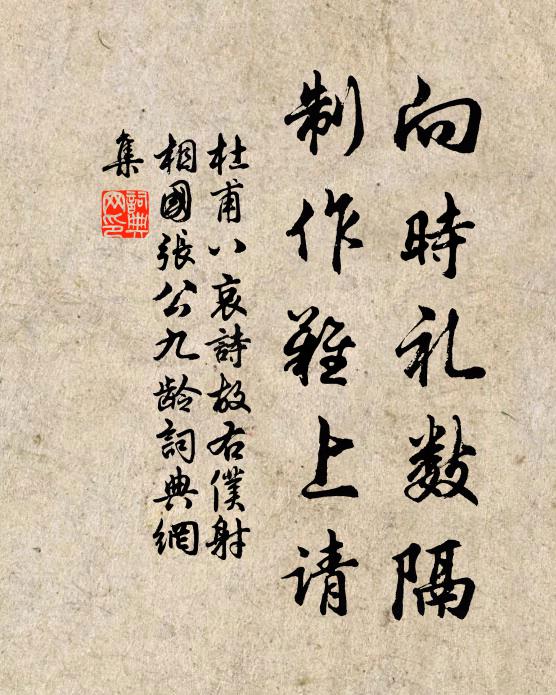 向時礼数隔
制作難上请
杜甫八哀詩故右僕射
相國張公九龄詞典網
集
詞典
网印